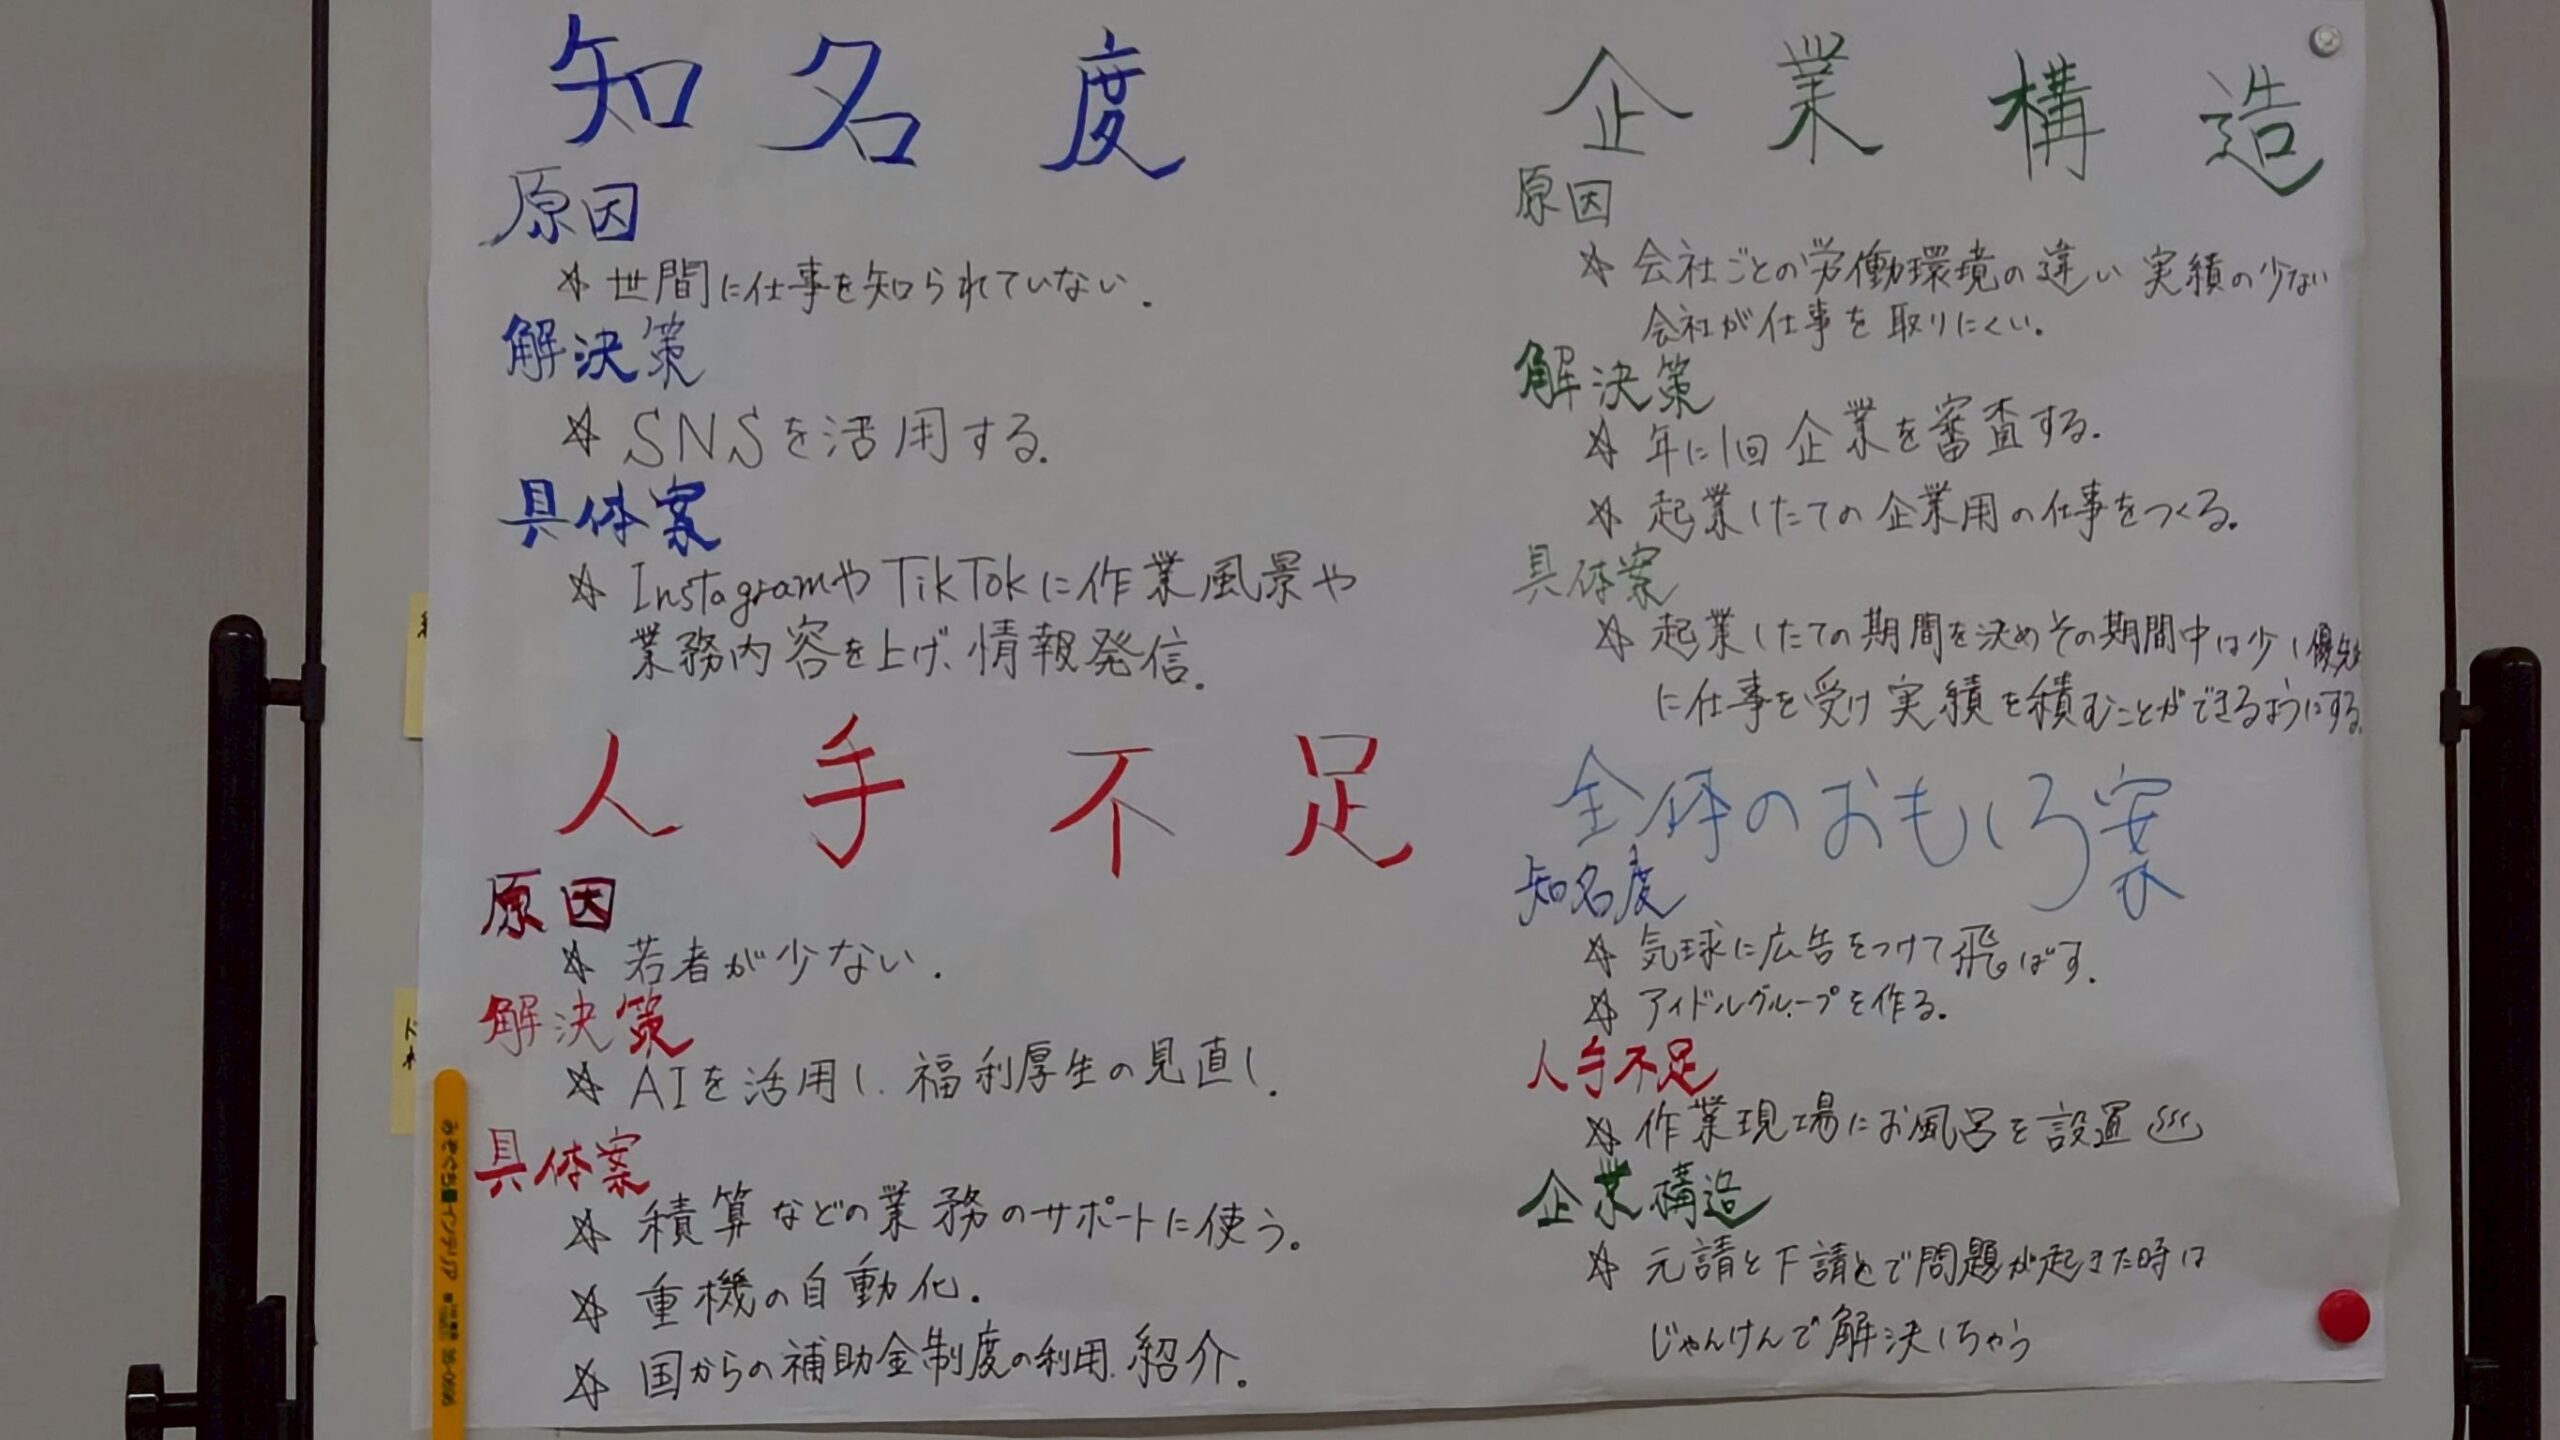 知名度
原因
☆ 世間に仕事を知られていない.
解決策
☆ SNSを活用する.
具体案
☆ InstagramやTikTokに作業風景や
業務内容を上げ、情報発信.
人手不足
原因
☆ 若者が少ない.
解決策
☆ AIを活用し、福利厚生の見直し.
具体案
☆ 積算などの業務のサポートに使う。
☆ 重機の自動化.
☆ 国からの補助金制度の利用、紹介。
企業構造
原因
☆ 会社ごとの労働環境の違い 実績の少ない
会社が仕事を取りにくい.
解決策
☆ 年に1回企業を審査する.
☆ 起業したての企業用の仕事をつくる.
具体案
☆ 起業したての期間を決めその期間中は少し優先
に仕事を受け実績を積むことができるようにする.
全体のおもしろ案
知名度
☆ 気球に広告をつけて飛ばす.
☆ アイドルグループを作る.
人手不足
☆ 作業現場にお風呂を設置
企業構造
☆ 元請と下請とで問題が起きた時は
じゃんけんで解決しちゃう